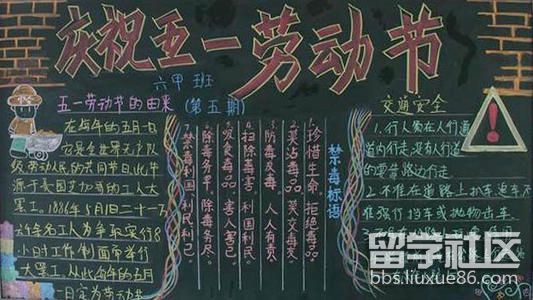 庆祝五一劳动节
六甲班
(第五期)
五一劳动节的由来
在每年的五月一日
它是全世界无产阶
级劳动人民的共同节日此节
源于美国芝加哥的工人大
罢工。1886年5月1日二十一万
六千名工人为争取实行8
小时工作制而举行
大罢工。从此每年的五月
一日定为劳动节
禁毒标语
1.珍惜生命 拒绝毒品。
2.莫沾毒品 莫交毒友
3.防毒反毒 人人有责
4.扫除毒害 利国利民。
5.吸食毒品 害人害己。
6.除毒务早 除毒务尽。
7.禁毒利国利民利己。
交通安全
1.行人须在人们通
道内行走,没有人行道
的要靠路边行走。
2.不准在道路上扒车、追车、不
准强行拦车或抛物击车。
3.不
留学社区
bbs.liuxue86.com